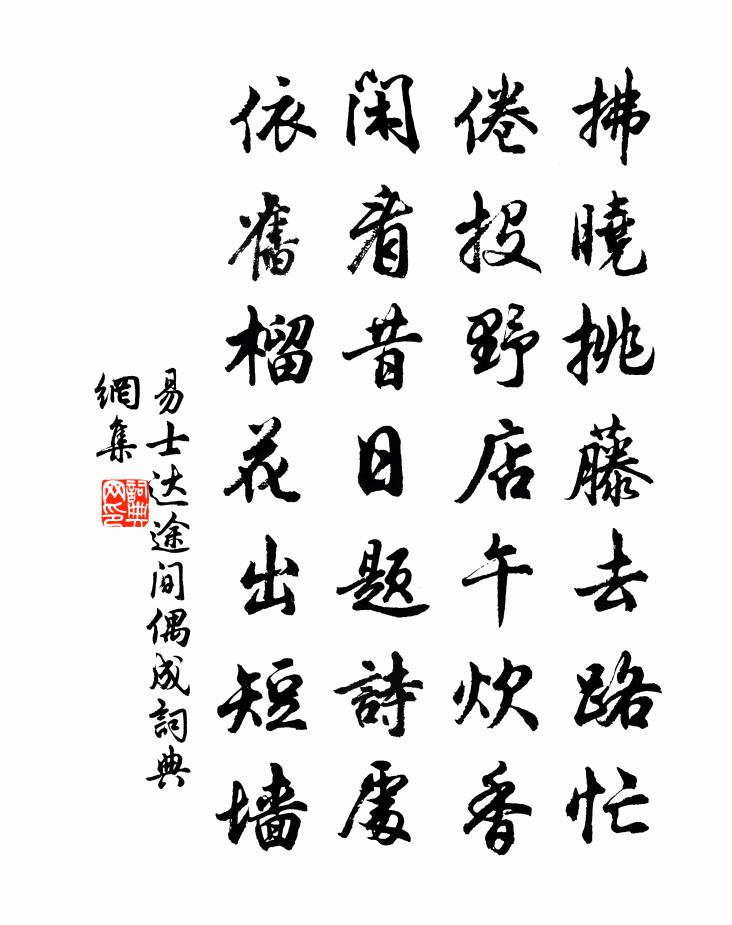 拂曉挑藤去路忙
倦投野店午炊香
閑看昔日題詩處
依舊榴花出短墻
易士达途间偶成詞典
網集
詞典
网印